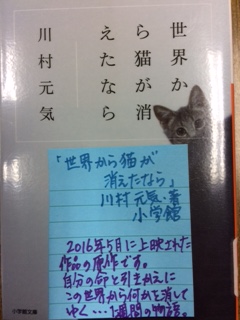 世界か
ら猫が消
えたなら
川村元気
「世界から猫が
消えたなら」
川村元気・著
小学館
2016年5月に上映された
作品の原作です。
自分の命と引きかえに
この世界から何かを消して
ゆく…1週間の物語。
小学館文庫